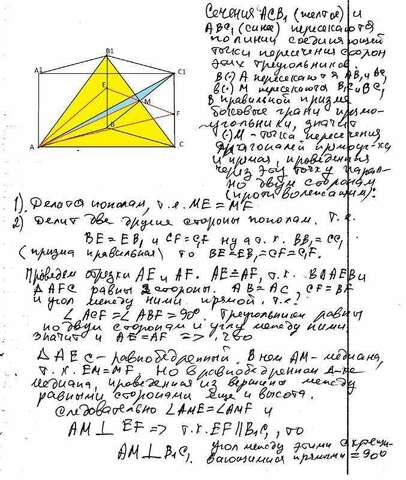 Сечения ACB₁ (желтое) и
ABC₁ (синее) пересекаются
по линии соединяющей
точки пересечения сторон
этих треугольников.
В(·) A пересекаются AB₁ и AC₁
в(·) M пересекаются B₁C и BC₁
В правильной призме
боковые грани прямо-
угольники, значит
(·)M - точка пересечения
диагоналей прямоуг-ка
и прямая, проведенная
через эту точку парал-
но двум сторонам
(противоположным).
B1
A1
C1
E
M
F
B
A
C
1). Делится пополам, т.е. ME = MF
2) Делит две другие стороны пополам. т.е.
BE = EB₁ и CF = C₁F ну а т.к. BB₁ = CC₁
(призма правильная) то BE = EB₁ = CF = C₁F.
Проведем отрезки AE и AF. AE = AF, т.к. В ΔAEB и
ΔAFC равны 2 стороны. AB = AC, CF = BF
и угол между ними прямой, т.е.
∠ACF = ∠ABF = 90°. Треугольники равны
по двум сторонам и углу между ними.
значит и AE = AF =>
ΔAEC - равнобедренный. В нем AM - медиана,
т.к. EM = MF, Но в равнобедренном Δ-ке
медиана, проведенная из вершины между
равными сторонами еще и высота.
Следовательно ∠AME = ∠AMF и
AM ⊥ EF => т.к. EF || B₁C₁, то
AM ⊥ B₁C₁. угол между этими скрещи-
вающимися прямыми = 90°